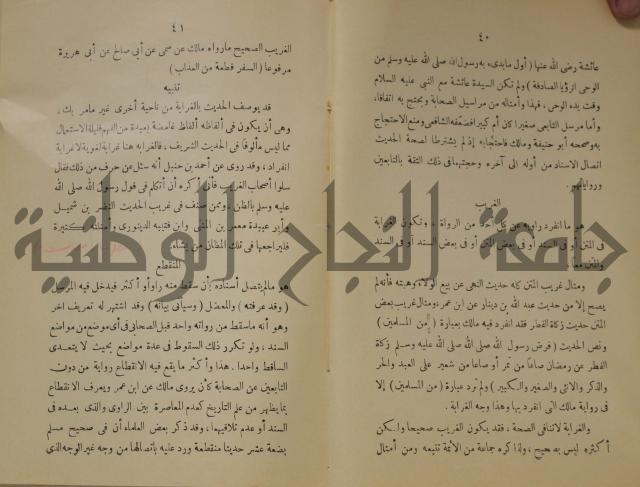 ٤٠
عائشة رضى الله عنها ( أول مابدىء به رسول الله صلى الله عليه وسلم من
الوحى الرؤيا الصادقة ) ولم تكن السيدة عائشة مع النبى عليه السلام
وقت بدء الوحى ، فهذا وأمثاله من مراسيل الصحابة ويحتج به اتفاقا،
وأما مرسل التابعى صغيرا كان أم كبيرا فضعفه الشافعى ومنع الاحتجاج
به وصححه أبو حنيفة ومالك فاحتجا به إذ لم يشترطا لصحة الحديث
اتصال الاسناد من أوله الى آخره وحجتهما فى ذلك الثقة بالتابعين
ورواياتهم
الغريب
هو ما انفرد راويه عن كل أحد من الرواة ، وتكون الغرابة
فى المتن أو فى السند أو فى بعض المتن أو فى بعض السند أو فى السند
والمتن معا
ومثال غريب المتن كله حديث النهى عن بيع الولاء وهبته فانه لم
يصح إلا من حديث عبد الله بن دينار عن ابن عمر، ومثال غريب بعض
المتن حديث زكاة الفطر فقد انفرد فيه مالك بعبارة ( من المسلمين )
ونص الحديث ( فرض رسول الله صلى الله عليه وسلم زكاة
الفطر من رمضان صاعا من تمر أو صاعا من شعير على العبد والحر
والذكر والانثى والصغير والكبير ) ولم ترد عبارة ( من المسلمين ) إلا
فى رواية مالك التى انفرد بها وهذا وجه الغرابة .
والغرابة لاتنافى الصحة ، فقد يكون الغريب صحيحا ولكن
أكثره ليس بصحيح ، ولذا كره جماعة من الأئمة تتبعه ومن أمثال
٤١
الغريب الصحيح مارواه مالك عن سمى عن أبى صالح عن أبى هريرة
مرفوعا ( السفر قطعة من العذاب )
تنبيه
قد يوصف الحديث بالغرابة من ناحية أخرى غير مامر بك ،
وهى أن يكون فى ألفاظه ألفاظ غامضة بعيدة من الفهم قليلة الاستعمال
مما ليس مألوفا فى الحديث الشريف ، فالغرابة هنا غرابة لغوية لاغرابة
انفراد ، وقد روى عن أحمد بن حنبل أنه سئل عن حرف من ذلك فقال
سلوا أصحاب الغريب فأنى أكره أن أتكلم فى قول رسول الله صلى الله
عليه وسلم بالظن ، وممن صنف فى غريب الحديث النضر بن شميل
وأبو عبيدة معمر بن المثنى وابن قتيبه الدينورى وأمثالهم كثيرة
فليراجعها فى تلك المظان من يشاء
المنقطع
هو مالم يتصل أسناده بأن سقط منه راو أو أكثر فيدخل فيه المرسل
( وقد عرفته ) والمعضل ( وسيأتى بيانه ) وقد اشتهر له تعريف آخر
وهو أنه ماسقط من رواته واحد قبل الصحابى فى أى موضع من مواضع
السند ، ولو تكرر ذلك السقوط فى عدة مواضع بحيث لا يتعدى
الساقط واحدا . هذا وأكثر ما يقع فيه الانقطاع رواية من دون
التابعين عن الصحابة كأن يروى مالك عن ابن عمر ويعرف الانقطاع
بما يظهر من علم التاريخ كعدم المعاصرة بين الراوى والذى بعده فى
السند أو عدم تلاقيهما، وقد ذكر بعض العلماء أن فى صحيح مسلم
بضعة عشر حديثا منقطعة ورد عليه باتصالها من وجه غير الوجه الذى
جامعة النجاح الوطنية